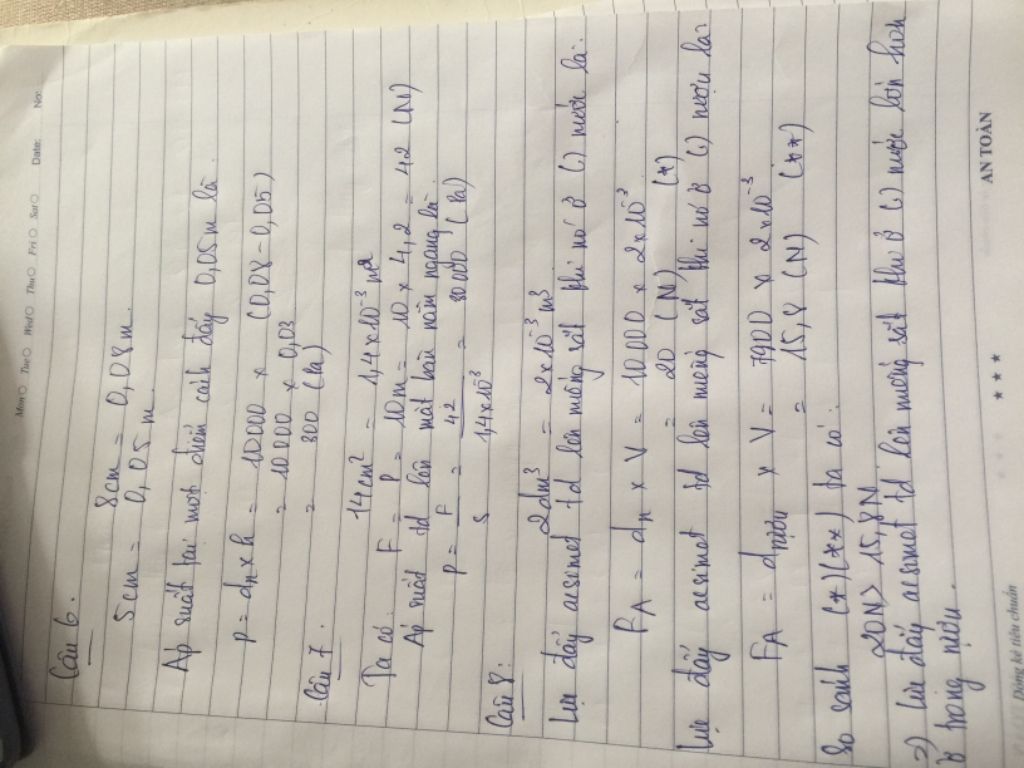 Mon Tue Wed Thu Fri Sat Date: No:
Câu 6.
8cm = 0,08m.
5cm = 0,05m
Áp suất tại một điểm cách đáy 0,05m là
P = dn x h = 10000 x (0,08 - 0,05)
= 10000 x 0,03
= 300 (Pa)
Câu 7.
14cm² = 1,4x10⁻³ m²
Ta có F = P = 10m = 10 x 4,2 = 42 (N)
Áp suất td lên mặt bàn nằm ngang là
P = F/S = 42/1,4x10⁻³ = 30000 (Pa)
Câu 8:
2dm³ = 2x10⁻³ m³
Lực đẩy acsimet td lên miếng sắt khi nó ở () nước là:
FA = dn x V = 10000 x 2x10⁻³
= 20 (N) (*)
Lực đẩy acsimet td lên miếng sắt khi nó ở () rượu là
FA = drượu x V = 7900 x 2x10⁻³
= 15,8 (N) (**)
So sánh (*)(**) ta có:
20N > 15,8N
=) Lực đẩy acsimet td lên miếng sắt khi ở () nước lớn hơn
ở trong rượu.
Dòng kẻ tiêu chuẩn
★ ★ ★
AN TOÀN